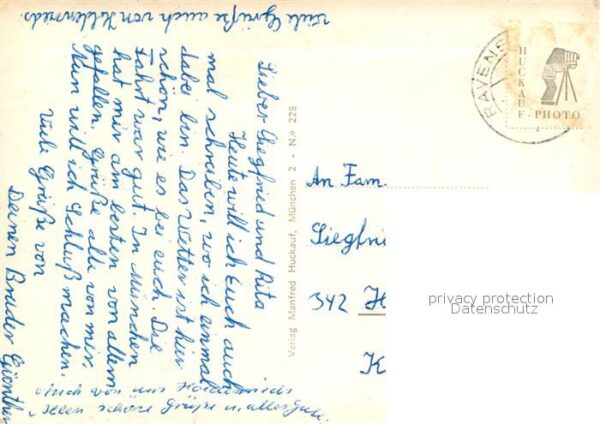 Lieber Siegfried und Rita
Heute will ich Euch auch
mal schreiben, wo ich einmal
dabei bin. Das Wetter ist hier
schön, wie es bei euch. Die
Fahrt war gut. In München
hat mir am besten von allem
gefallen. Grüße alle von mir.
Nun will ich Schluß machen.
Viele Grüße von
Deinen Bruder Günther
Auch von uns
Allen schöne Grüße u. alles Gute.
Viele Grüße auch von
Verlag Manfred Huckauf, München 2 - N.º 228
RAVENS
HUCKAUF - PHOTO
An Fam.
Siegfri
342 H
K
privacy protection
Datenschutz